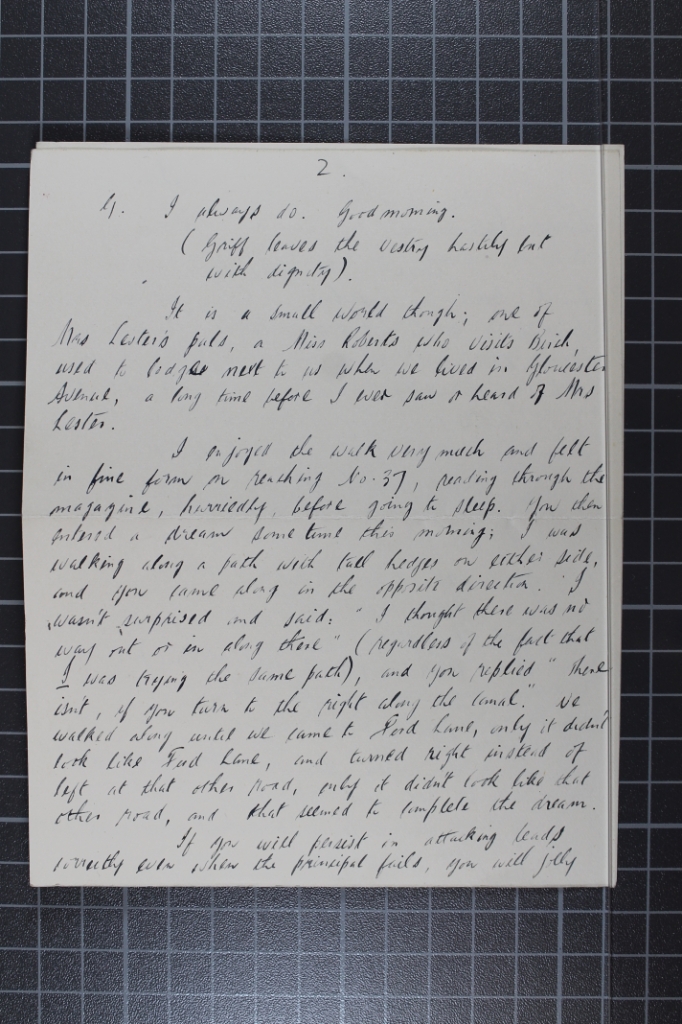 2.
G. I always do. Good morning.
(Griff leaves the vestry hastily but
with dignity).
It is a small world though; one of
Mrs Lester's pals, a Miss Roberts who visits Birch,
used to lodge next to us when we lived in Gloucester
Avenue, a long time before I ever saw or heard of Mrs
Lester.
I enjoyed the walk very much and felt
in fine form on reaching No. 37, reading through the
magazine, hurriedly, before going to sleep. You then
entered a dream some time this morning; I was
walking along a path with tall hedges on either side,
and you came along in the opposite direction. I
wasn't surprised and said: "I thought there was no
way out or in along there" (regardless of the fact that
I was trying the same path), and you replied "there
isn't, if you turn to the right along the canal." We
walked along until we came to Ford Lane, only it didn't
look like Ford Lane, and turned right instead of
left at that other road, only it didn't look like that
other road, and that seemed to complete the dream.
If you will persist in attacking leads
correctly even when the principal fails, you will jolly